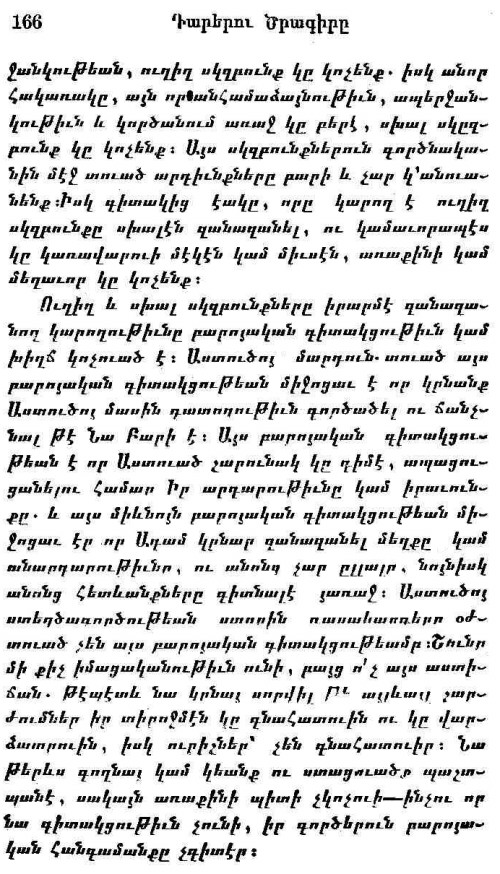 166 Դարերու Ծրագիրը
ջանկութեան, ուղիղ սկզբունք կը կոչենք. իսկ անոր
հակառակը, այն որ անհամաձայնութիւն, ապերջան-
կութիւն և կործանում առաջ կը բերէ, սխալ սկըզ-
բունք կը կոչենք։ Այս սկզբունքներուն գործնակա-
նին մէջ տուած արդիւնքները բարի և չար կ՚անուա-
նենք։ Իսկ գիտակից էակը, որը կարող է ուղիղ
սկզբունքը սխալէն զանազանել, ու կամաւորապէս
կը կառավարուի մէկէն կամ միւսէն, առաքինի կամ
մեղաւոր կը կոչենք։
Ուղիղ և սխալ սկզբունքները իրարմէ զանազա-
նող կարողութիւնը բարոյական գիտակցութիւն կամ
խիղճ կոչուած է։ Աստուծոյ մարդուն տուած այս
բարոյական գիտակցութեան միջոցաւ է որ կրնանք
Աստուծոյ մասին դատողութիւն գործածել ու ճանչ-
նալ թէ Նա Բարի է։ Այս բարոյական գիտակցու-
թեան է որ Աստուած շարունակ կը դիմէ, ապացու-
ցանելու համար Իր արդարութիւնը կամ իրաւուն-
քը. և այս միևնոյն բարոյական գիտակցութեան մի-
ջոցաւ էր որ Ադամ կրնար զանազանել մեղքը կամ
անարդարութիւնը, ու անոնց չար ըլլալը, նոյնիսկ
անոնց հետևանքները գիտնալէ յառաջ։ Աստուծոյ
ստեղծագործութեան ստորին դասակարգերը օժ-
տուած չեն այս բարոյական գիտակցութեամբ։ Շունը
մի քիչ իմացականութիւն ունի, բայց ո՛չ այս աստի-
ճան. թէպէտև նա կրնայ սորվիլ թէ այլևայլ շար-
ժումներ իր տիրոջմէն կը գնահատուին ու կը վար-
ձատրուին, իսկ ուրիշներ՝ չեն գնահատուիր։ Նա
թերևս գողնայ կամ կեանք ու ստացուածք պաշտ-
պանէ, սակայն առաքինի պիտի չկոչուի—ինչու որ
նա գիտակցութիւն չունի, իր գործերուն բարոյա-
կան հանգամանքը չգիտէր։